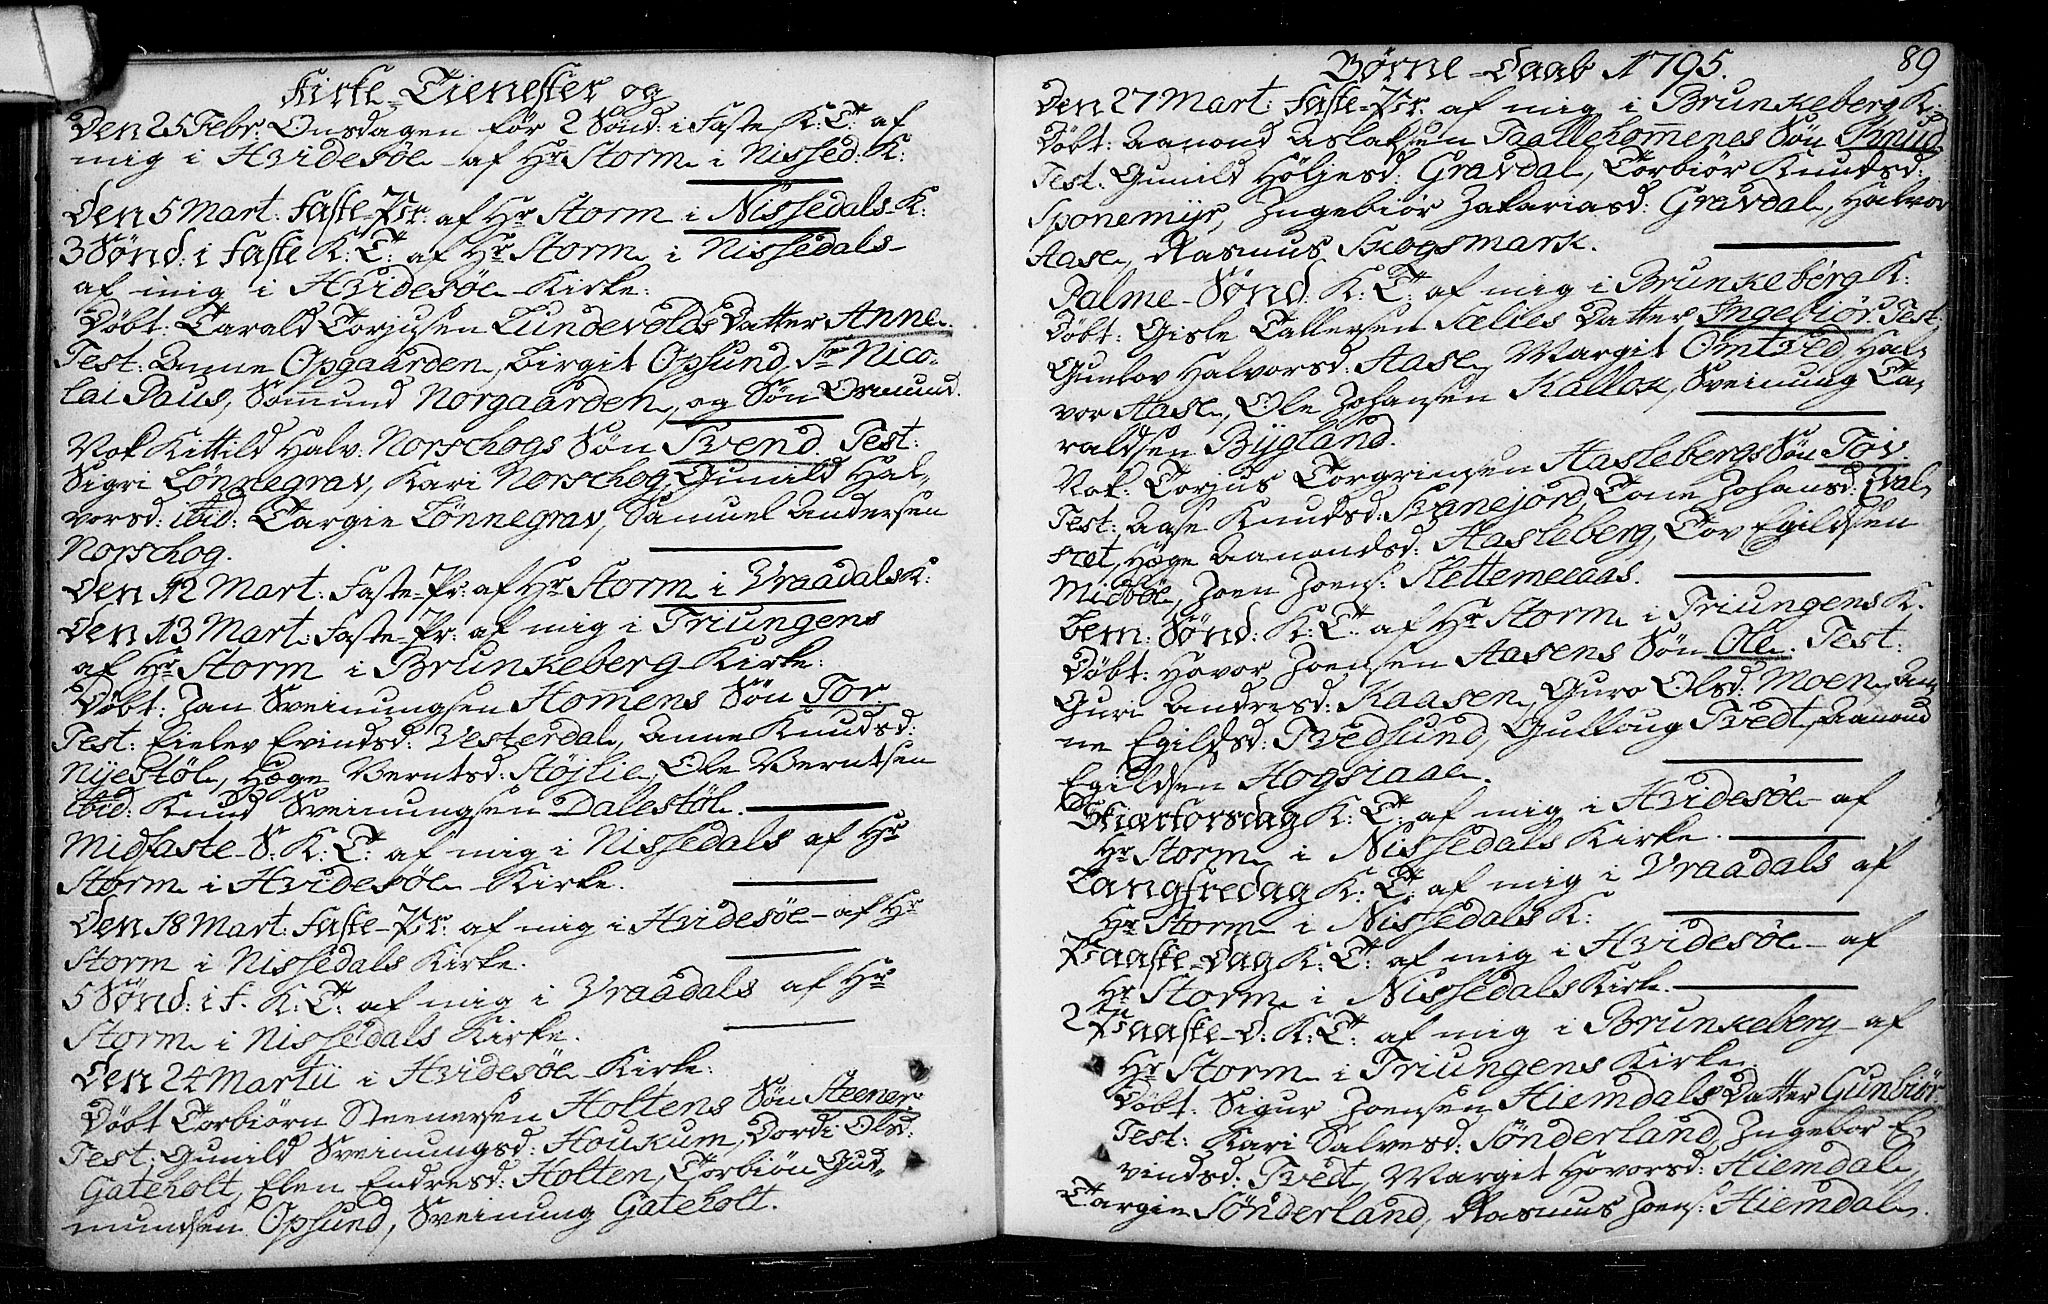 Kirke-Tienester og
Den 25 Febr: Onsdagen før 2 Sönd: i Faste K: T: af
mig i Hvidesøe - af Hr Storm i Nissed: K:
Den 5 Mart: Faste-Pr: af Hr Storm i Nissedals K:
3 Sönd: i Faste K: T: af Hr Storm i Nissedals-
af mig i Hvidesøe Kirke:
Döbt: Tarald Torjusen Lundevolds Datter Anne.
Test: Anne Opgaarden, Birgit Opsund, Sr Nico-
lai Paus, Sommund Norgaarden, og Søn Osmund.
Nok Kittild Halv: Norschogs Søn Svend. Test:
Sigri Lønnegrav, Kari Norschog, Gunild Hal-
vorsd: ibid: Targie Lønnegrav, Samuel Andersen
Norschog.
Den 12 Mart: Faste-Pr: af Hr Storm i Vraadals K:
Den 13 Mart: Faste-Pr: af mig i Triungens
af Hr Storm i Brunkeberg Kirke:
Döbt: Jan Sveinungsen Homenes Søn Tor.
Test: Eielev Evindsd: Vesterdal, Anne Knudsd:
Nyestøl, Hæge Berntsd: Støjlie, Ole Berntsen
ibid: Knud Sveinungsen Dalestøl.
Midfaste S: K: T: af mig i Nissedals af Hr
Storm i Hvidesøe Kirke.
Den 18 Mart: Faste-Pr: af mig i Hvidesøe - af Hr
Storm i Nissedals Kirke.
5 Sönd: i F. K: T: af mig i Vraadals af Hr
Storm i Nissedals Kirke.
Den 24 Martii i Hvidesøe Kirke:
Döbt Torbiörn Steenersen Holtens Søn Steener.
Test: Gunild Sveinungsd: Houkum, Dordi Olsd:
Gateholt, Elen Endresd: Holten, Torbiön Gud-
mundsen Opsund, Sveinung Gateholt.
Børne-Daab 1795. 89
Den 27 Mart: Faste-Pr: af mig i Brunkeberg K:
Döbt: Aanond Aslaksen Taallehommenes Søn Knud.
Test: Gunild Höljesd: Gravdal, Torbiör Knudsd:
Sponemyr, Ingebiör Zakariasd: Gravdal, Halvor
Aase, Rasmus Skogsmark.
Palme-Sönd: K: T: af mig i Brunkeberg K:
Döbt: Gisle Tallefsen Sælies Datter Ingebiør. Test:
Gunlov Halvorsd: Aase, Margit Omtved, Hal-
vor Aase, Ole Johansen Kallok, Sveinung Ta-
raldsen Bygland.
Nok: Torjus Torgrimsen Haslebergs Søn Tov.
Test: Aase Knudsd: Svanejord, Tone Johansd: Dal
ret, Hæge Aanondsd: Hasleberg, Tov Egildsen
Midbøe, Joen Joens: Slettemeaas.
bem: Sönd: K: T: af Hr Storm i Triungens K.
Döbt: Havor Joensen Aasens Søn Ole. Test:
Guri Andresd: Kaasen, Guro Olsd: Moen, An-
ne Egildsd: Tvedsund, Gulloug Tvedt, Aanond
Egildsen Hogsiaae.
Skiærtorsdag K: T: af mig i Hvidesøe - af
Hr Storm i Nissedals Kirke.
Langfredag K: T: af mig i Vraadals af
Hr Storm i Nissedals K:
Paaske-Dag K: T: af mig i Hvidesøe - af
Hr Storm i Nissedals Kirke.
2den Paaske-D: K: T: af mig i Brunkeberg - af
Hr Storm i Triungens Kirke.
Döbt: Sigur Joensen Hiemdals Datter Gunbiør.
Test: Kari Salvesd: Sönderland, Ingebor E-
vindsd: Tvedt, Margit Hovorsd: Hiemdal,
Targie Sönderland, Rasmus Joens: Hiemdal.